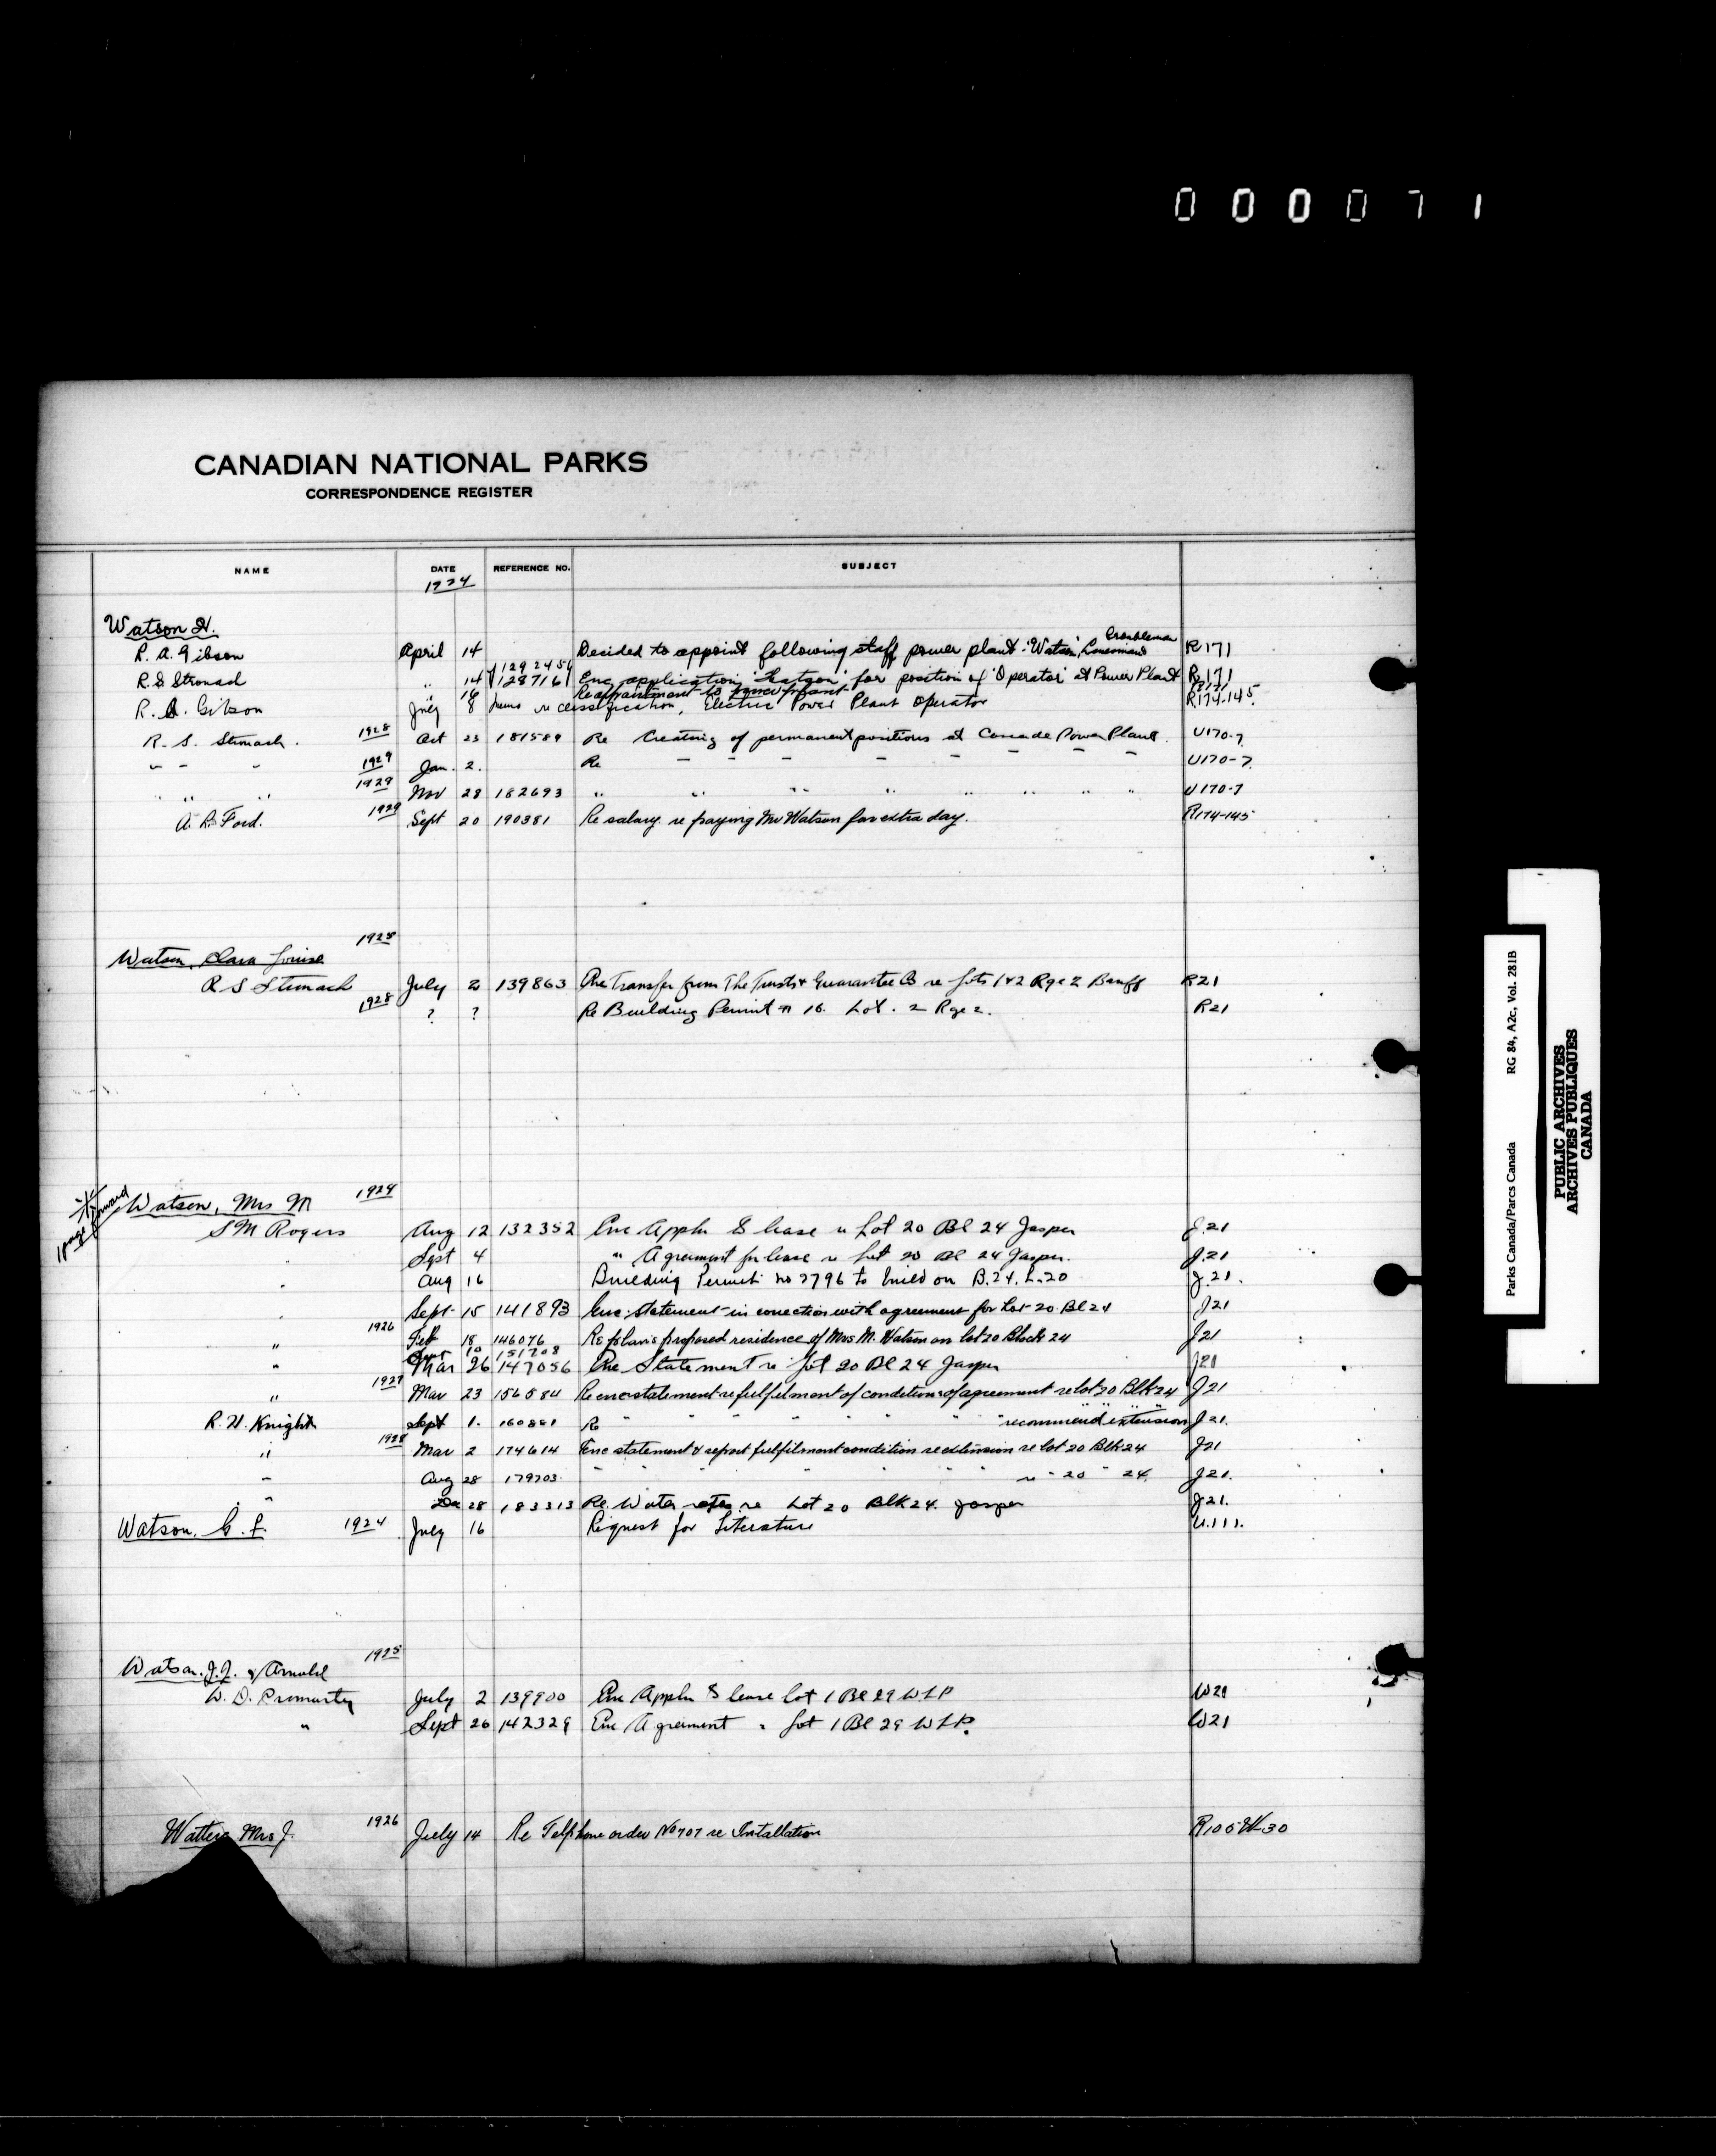 000071
CANADIAN NATIONAL PARKS
CORRESPONDENCE REGISTER
NAME DATE REFERENCE NO. SUBJECT
1924
Watson H.
Troubleman
R. A. Gibson April 14 Decided to appoint following staff power plant - Watson, Linesman R171
129245
R.S. Stronach " 14 128716 Enc application Watson for position of 'Operator' at Power Plant R171
16 Re appointment to power plant R171
R. A. Gibson July 8 Memo re classification, Electric Power Plant Operator R174-145.
R. S. Stronach. 1928 Oct 23 181589 Re Creating of permanent positions at Cascade Power Plant. U170-7
" " " 1929 Jan. 2. Re - - - - - U170-7
" " 1929 Nov 28 182693 " " " " " " " " U170-7
A. L. Ford. 1929 Sept 20 190381 Re salary re paying Mr Watson for extra day. R174-145
Watson, Clara Louise
R S Stronach July 2 139863 Enc Transfer from The Trusts & Guarantee Co re Lots 1 & 2 Rge 2 Banff R21
1928 ? ? Re Building Permit # 16. Lot. 2 Rge 2. R21
1 page forward
Watson, Mrs M 1924
S M Rogers Aug 12 132352 Enc Appln & lease re Lot 20 Bl 24 Jasper J.21
Sept 4 " Agreement for lease re Lot 20 Bl 24 Jasper. J.21
" Aug 16 Building Permit no 2796 to build on B.24. L.20 J.21.
" Sept 15 141893 Enc. Statement in conection with agreement for Lot 20 Bl 24 J21
1926
" Feb 18 146076 Re plans proposed residence of Mrs M. Watson on lot 20 Block 24 J21
10 151708
" Mar 26 147056 Enc Statement re Lot 20 Bl 24 Jasper J21
1927
" Mar 23 156584 Re enc statement re fulfilment of conditions of agreement re lot 20 Blk 24 J21
R. H. Knight Sept 1. 160881 Re " " " " " " " recommend extension J21.
1928
" Mar 2 174614 Enc statement & report fulfilment condition re extension re lot 20 Blk 24 J21
" Aug 28 179703 " " " " " " " re " 20 " 24. J21.
" Dec 28 183313 Re. Water rates re Lot 20 Blk 24. Jasper J21.
Watson, G. L. 1924 July 16 Request for Literature U.111.
1925
Watson. J.J. & Arnold
W. D. Cromarty July 2 139900 Enc Appln & lease lot 1 Bl 29 WLP W21
" Sept 26 142329 Enc Agreement " Lot 1 Bl 29 WLP. W21
Watters Mrs J. 1926 July 14 Re Telphone order No 707 re Installation R105W-30
Parks Canada/Parcs Canada RG 84, A2c, Vol. 281B
PUBLIC ARCHIVES
ARCHIVES PUBLIQUES
CANADA